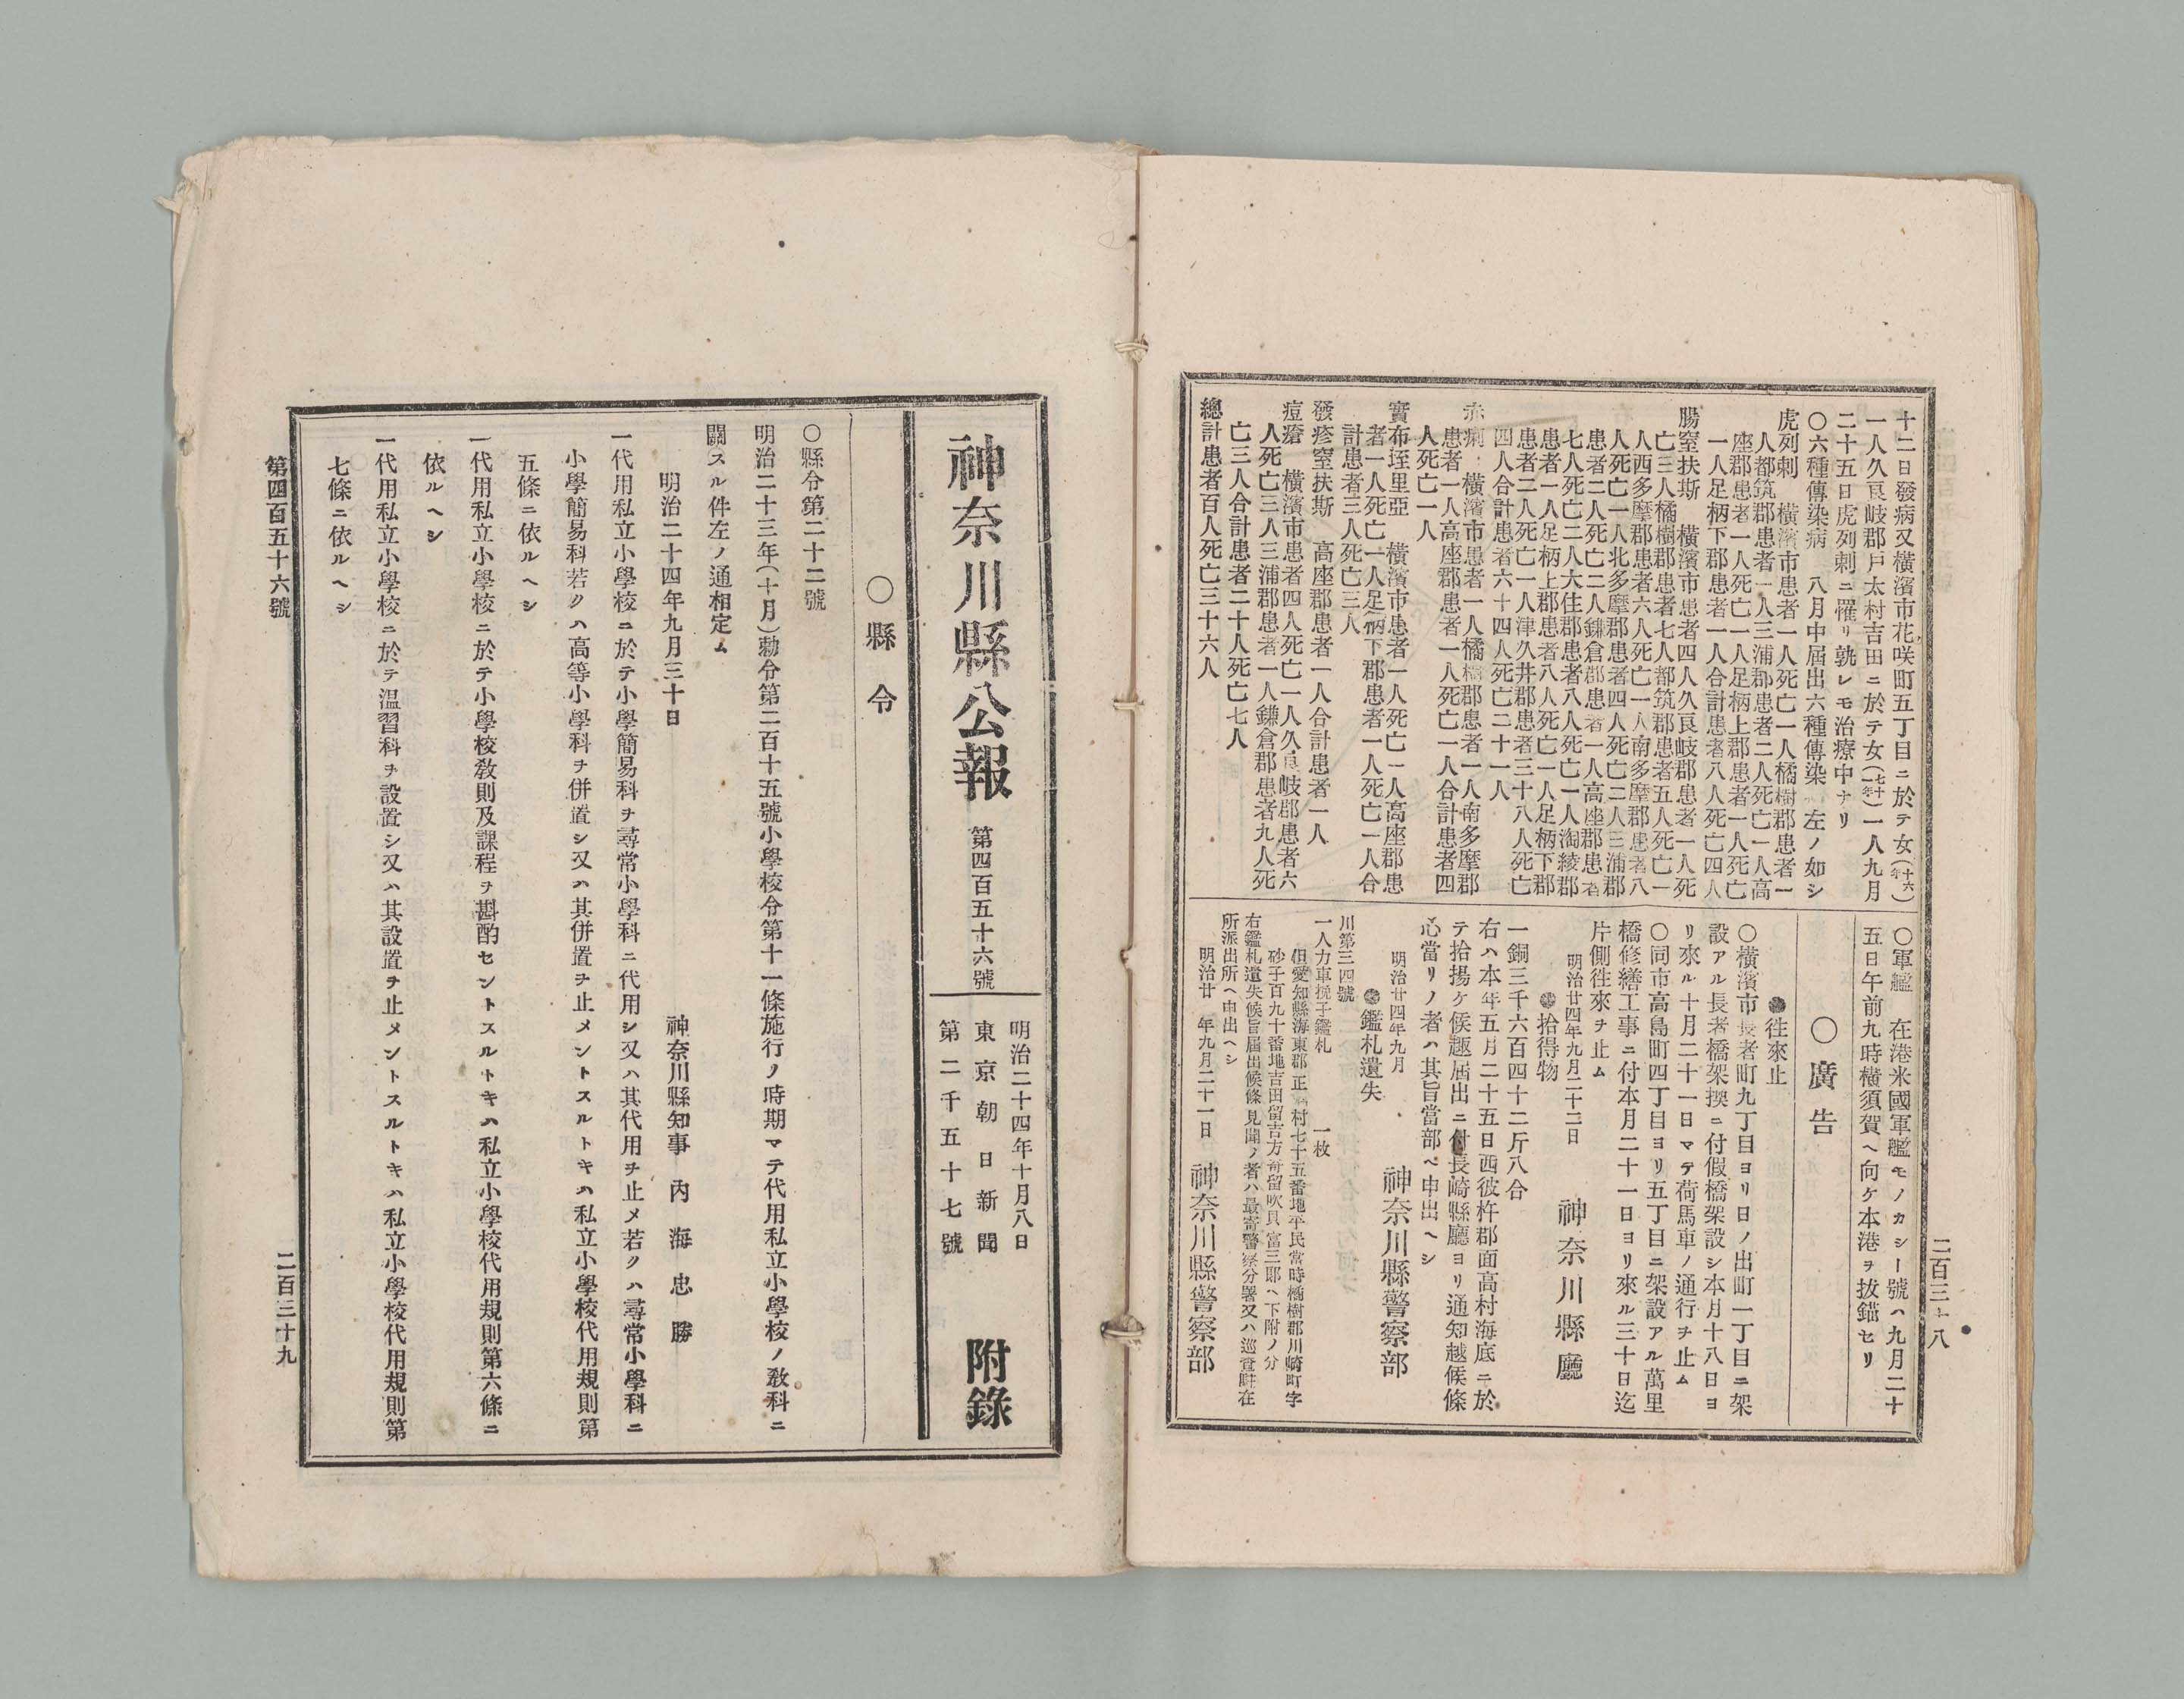 二百三十八
十二日發病又橫濱市花咲町五丁目ニ於テ女(十六年)
一人久良岐郡戸太村吉田ニ於テ女(七十一年)一人九月
二十五日虎列剌ニ罹リ孰レモ治療中ナリ
〇六種傳染病 八月中届出六種傳染 左ノ如シ
虎列剌 橫濱市患者一人死亡一人橘樹郡患者一
人都筑郡患者一人三浦郡患者二人死亡一人高
座郡患者一人死亡一人足柄上郡患者一人死亡
一人足柄下郡患者一人合計患者八人死亡四人
腸窒扶斯 橫濱市患者四人久良岐郡患者一人死
亡三人橘樹郡患者七人都筑郡患者五人死亡一
人西多摩郡患者六人死亡一人南多摩郡患者八
人死亡一人北多摩郡患者四人死亡二人三浦郡
患者二人死亡二人鎌倉郡患者一人高座郡患者
七人死亡二人大住郡患者八人死亡一人淘綾郡
患者一人足柄上郡患者八人死亡一人足柄下郡
患者二人死亡一人津久井郡患者三十八人死亡
四人合計患者六十四人死亡二十一人
赤痢 橫濱市患者一人橘樹郡患者一人南多摩郡
患者一人高座郡患者一人死亡一人合計患者四
人死亡一人
實布垤里亞 橫濱市患者一人死亡一人高座郡患
者一人死亡一人足柄下郡患者一人死亡一人合
計患者三人死亡三人
發疹窒扶斯 高座郡患者一人合計患者一人
痘瘡 橫濱市患者四人死亡一人久良岐郡患者六
人死亡三人三浦郡患者一人鎌倉郡患者九人死
亡三人合計患者二十人死亡七人
總計患者百人死亡三十六人
〇軍艦 在港米國軍艦モノカシー號ハ九月二十
五日午前九時橫須賀ヘ向ケ本港ヲ拔錨セリ
〇廣告
●徃來止
〇橫濱市長者町九丁目ヨリ日ノ出町一丁目ニ架
設アル長者橋架換ニ付假橋架設シ本月十八日ヨ
リ來ル十月二十一日マテ荷馬車ノ通行ヲ止ム
〇同市高島町四丁目ヨリ五丁目ニ架設アル萬里
橋修繕工事ニ付本月二十一日ヨリ來ル三十日迄
片側徃來ヲ止ム
明治廿四年九月二十二日 神奈川縣廳
●拾得物
一銅三千六百四十二斤八合
右ハ本年五月二十五日西彼杵郡面高村海底ニ於
テ拾揚ケ候趣届出ニ付長崎縣廳ヨリ通知越候條
心當リノ者ハ其旨當部ヘ申出ヘシ
明治廿四年九月 神奈川縣警察部
●鑑札遺失
川第三四號
一人力車挽子鑑札 一枚
但愛知縣海東郡正 村七十五番地平民當時橘樹郡川崎町字
砂子百九十番地吉田留吉方寄留吹貝富三郎ヘ下附ノ分
右鑑札遺失候旨届出候條見聞ノ者ハ最寄警察分署又ハ巡査駐在
所派出所ヘ申出ヘシ
明治廿 年九月二十一日 神奈川縣警察部
神奈川縣公報 第四百五十六號
明治二十四年十月八日
東京朝日新聞
第二千五十七號
附錄
〇縣令
〇縣令第二十二號
明治二十三年(十月)勅令第二百十五號小學校令第十一條施行ノ時期マテ代用私立小學校ノ敎科ニ
關スル件左ノ通相定ム
明治二十四年九月三十日 神奈川縣知事 內海忠勝
一代用私立小學校ニ於テ小學簡易科ヲ尋常小學科ニ代用シ又ハ其代用ヲ止メ若クハ尋常小學科ニ
小學簡易科若クハ高等小學科ヲ併置シ又ハ其併置ヲ止メントスルトキハ私立小學校代用規則第
五條ニ依ルヘシ
一代用私立小學校ニ於テ小學校敎則及課程ヲ斟酌セントスルトキハ私立小學校代用規則第六條ニ
依ルヘシ
一代用私立小學校ニ於テ溫習科ヲ設置シ又ハ其設置ヲ止メントスルトキハ私立小學校代用規則第
七條ニ依ルヘシ
第四百五十六號
二百三十九